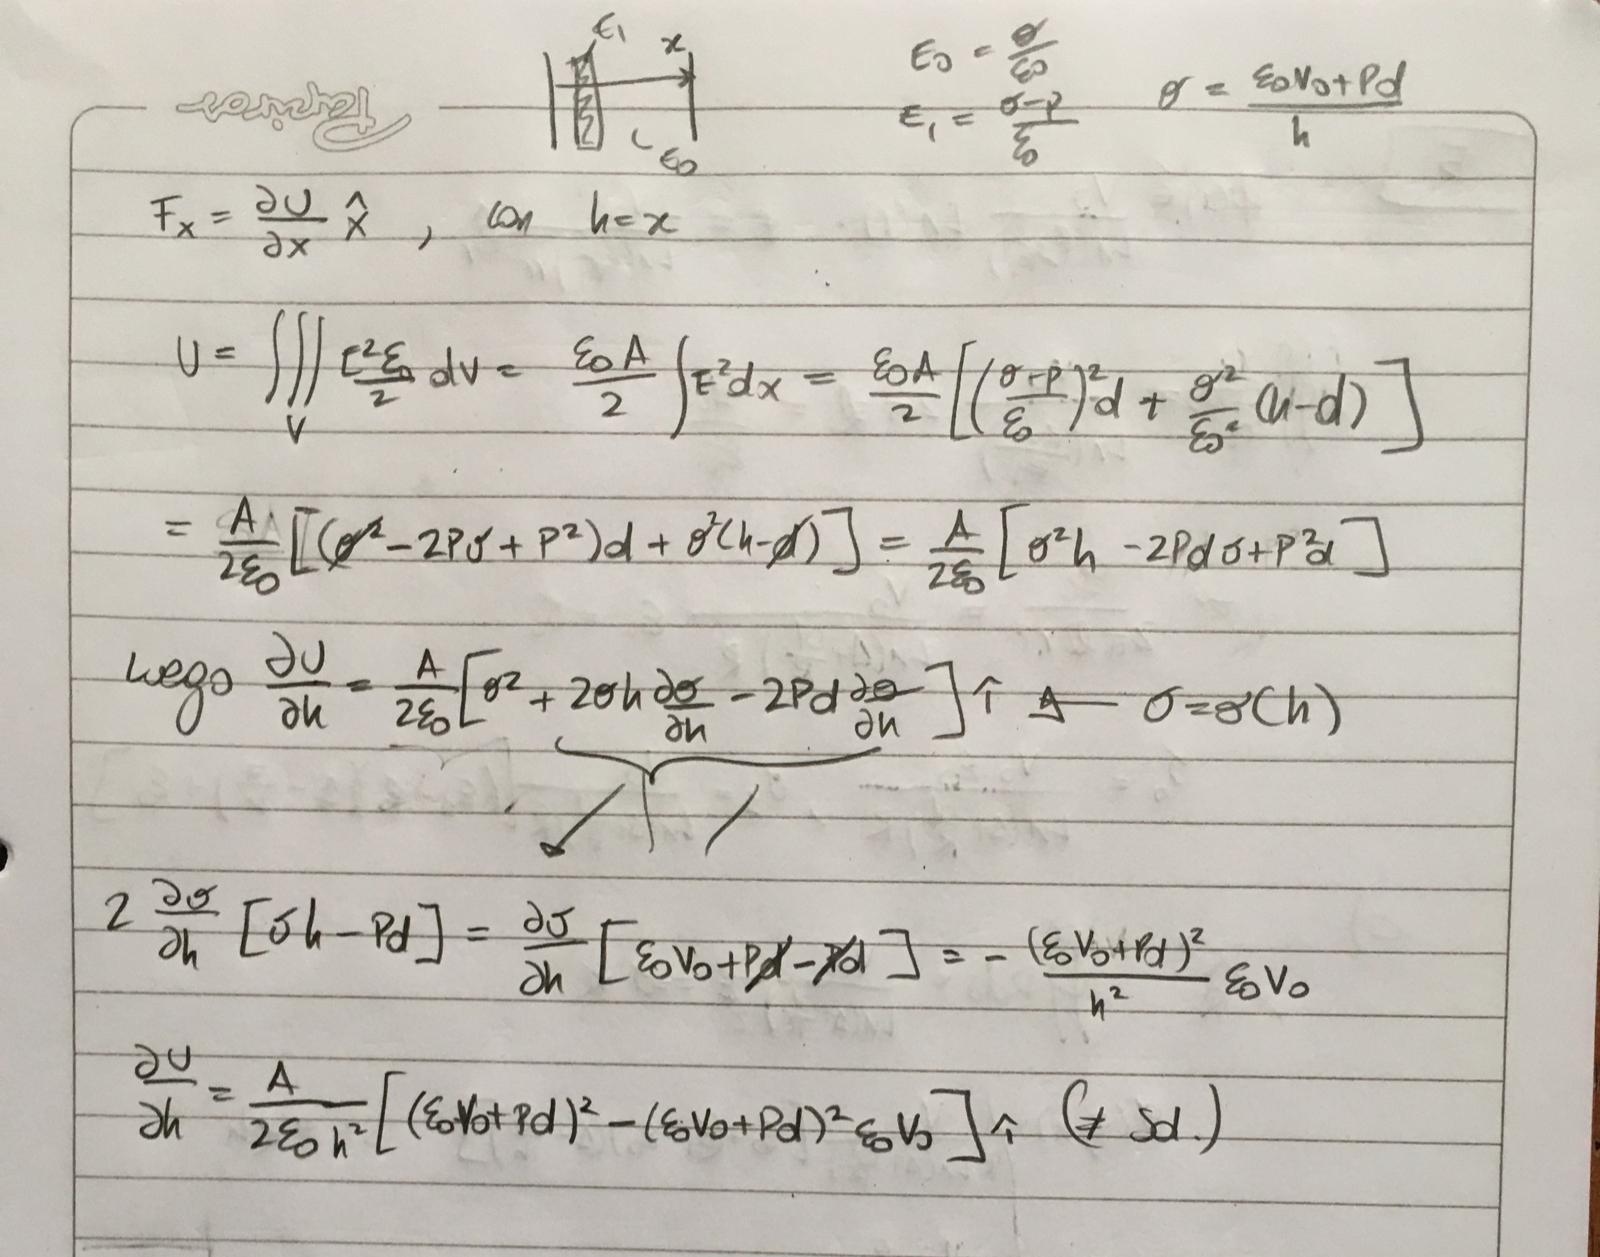 ε₁ x ε₀
E₀ = σ/ε₀
E₁ = (σ-P)/ε₀
σ = (ε₀V₀+Pd)/h
Papiros
Fₓ = ∂U/∂x x̂ , con h=x
U = ∭_V E²ε₀/2 dV = ε₀A/2 ∫E²dx = ε₀A/2 [((σ-P)/ε₀)²d + σ²/ε₀² (h-d)]
= A/2ε₀ [(σ²-2Pσ+P²)d + σ²(h-d)] = A/2ε₀ [σ²h -2Pdσ+P²d]
Luego ∂U/∂h = A/2ε₀ [σ² + 2σh ∂σ/∂h - 2Pd ∂σ/∂h] î ← σ=σ(h)
2 ∂σ/∂h [σh-Pd] = ∂σ/∂h [ε₀V₀+Pd-Pd] = - (ε₀V₀+Pd)²/h² ε₀V₀
∂U/∂h = A/2ε₀h² [(ε₀V₀+Pd)² - (ε₀V₀+Pd)² ε₀V₀] î (≠ Sol.)